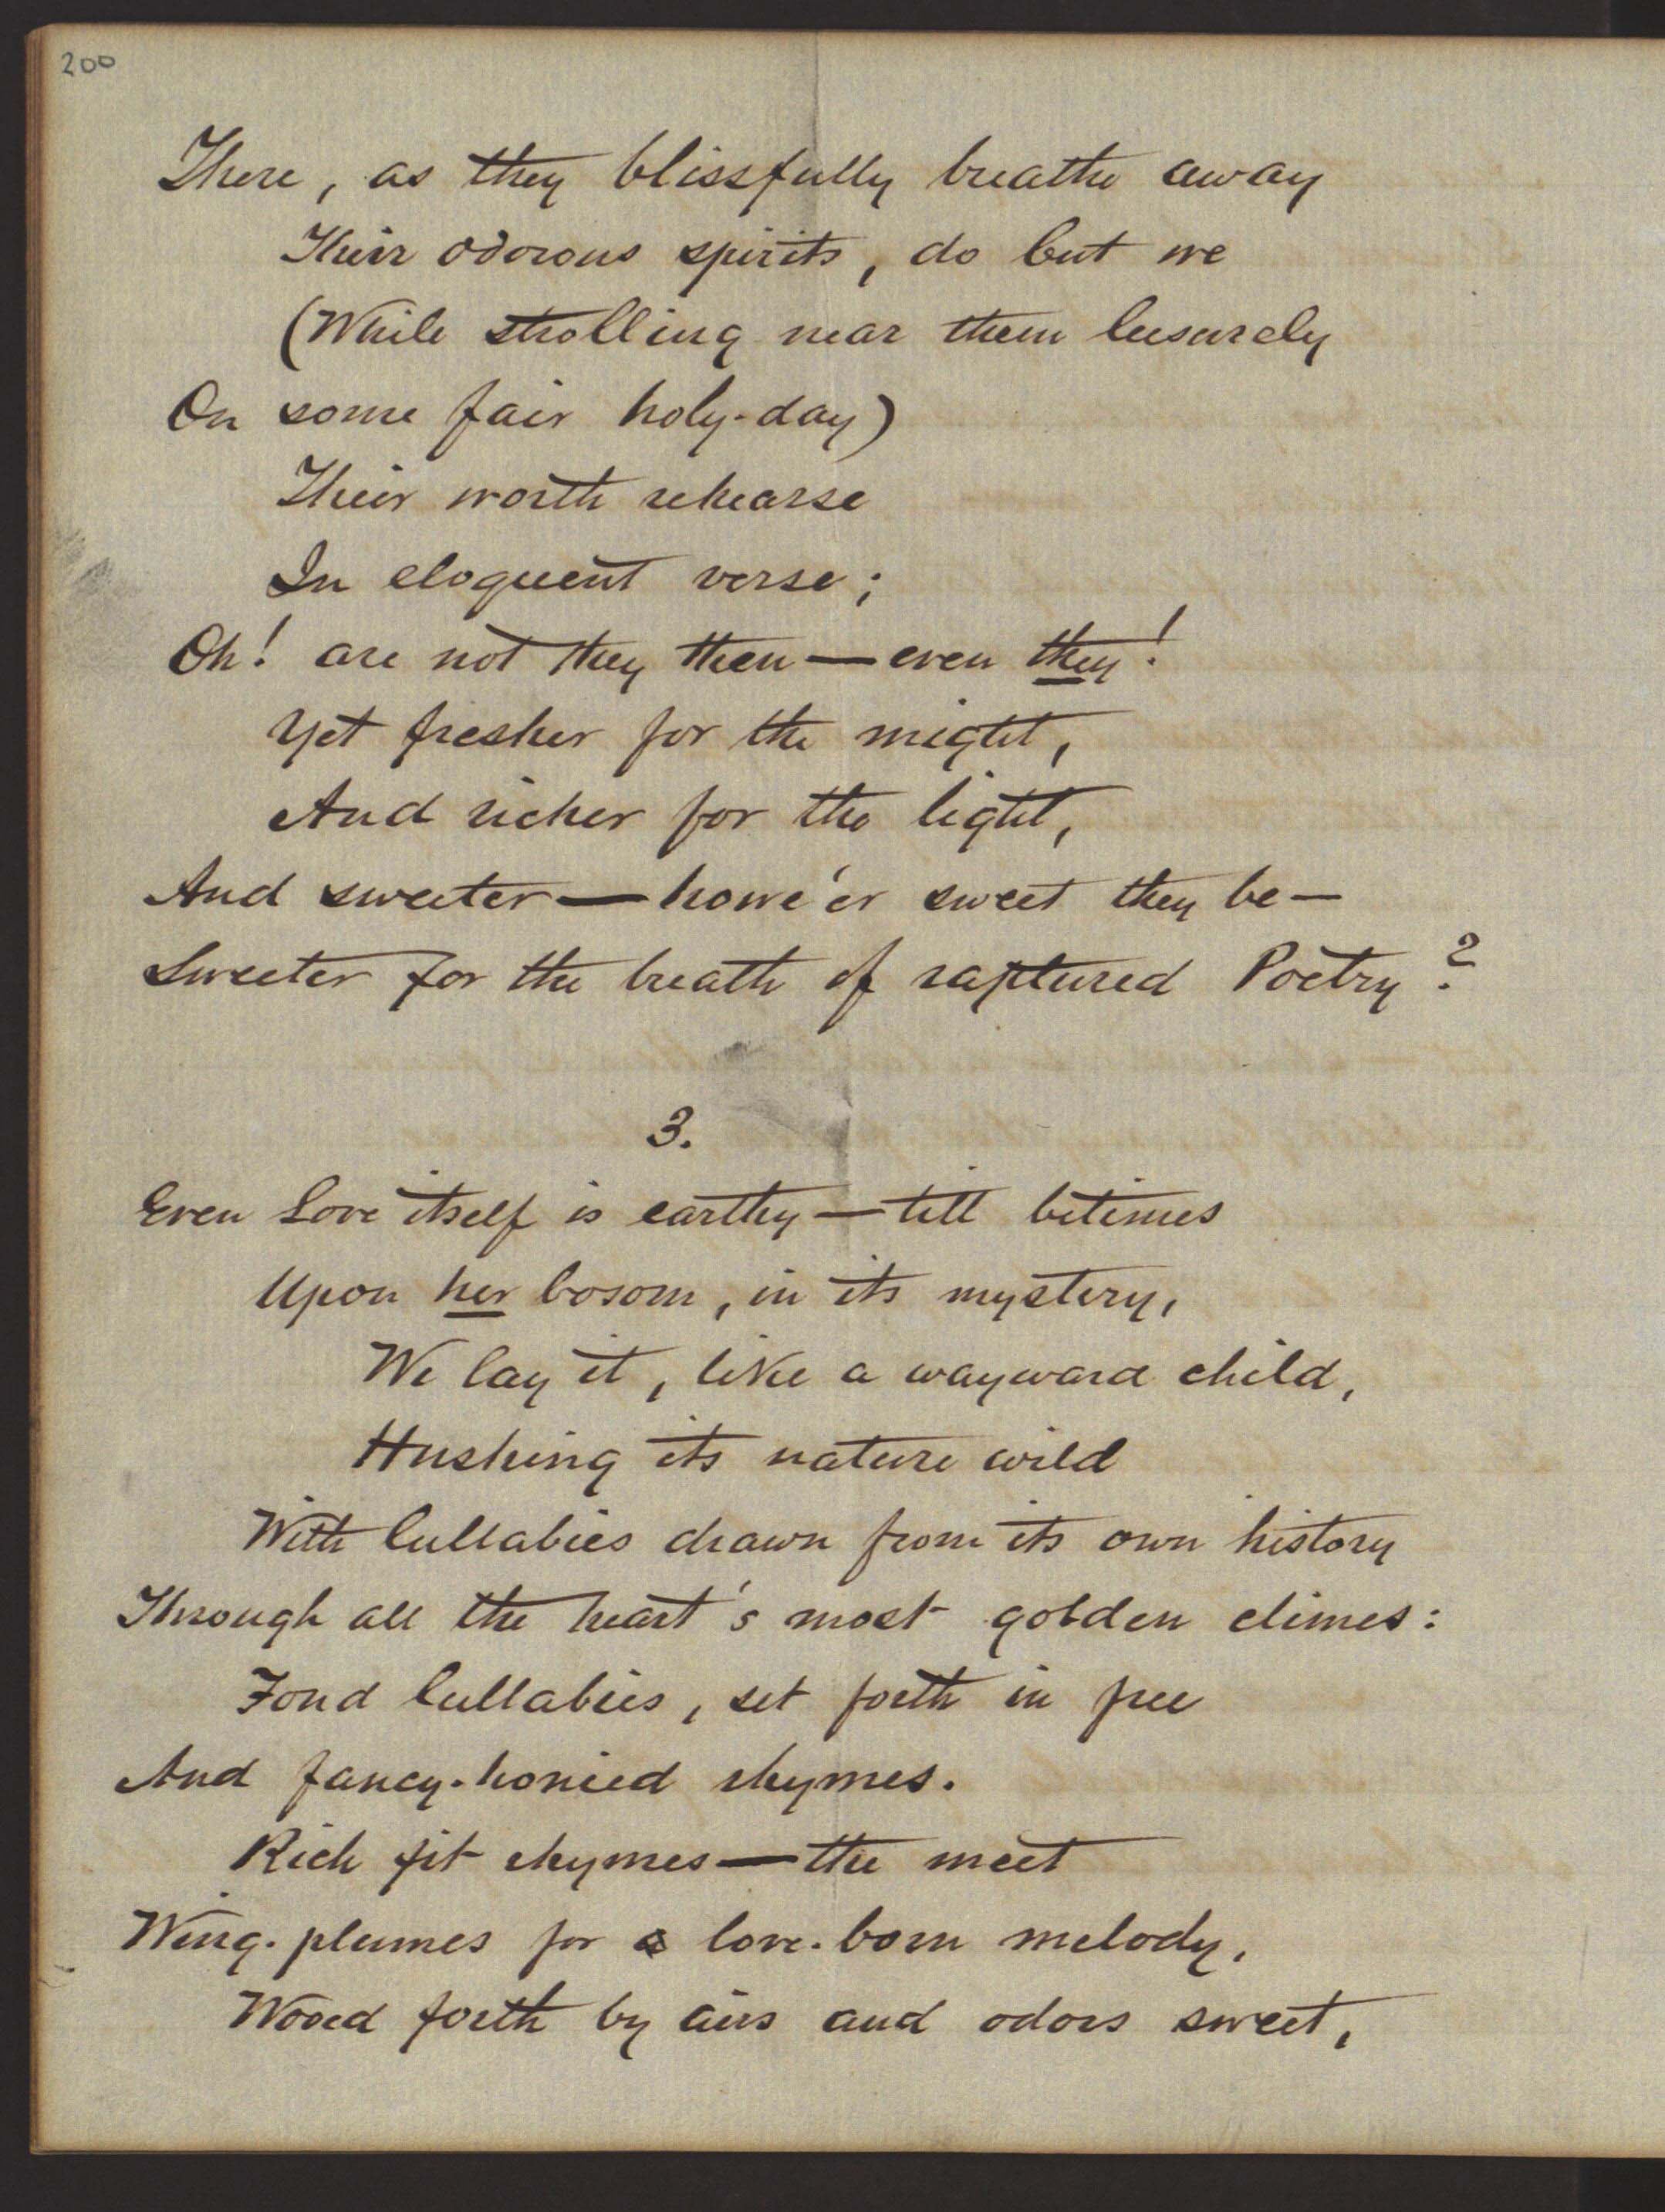 200
There, as they blissfully breathe away
Their odorous spirits, do but we
(While strolling near them leesurely
On some fair holy-day)
Their worth rehearse
In eloquent verse;
Oh! are not they then—even they!
Yet fresher for the might,
And richer for the light,
And sweeter—howe'er sweet they be—
Sweeter for the breath of raptured Poetry?
3.
Even Love itself is earthy—till betimes
Upon her bosom, in its mystery,
We lay it, like a wayward child,
Hushing its nature wild
With lullabies drawn from its own history
Through all the heart's most golden climes:
Fond lullabies, set forth in free
And fancy-honied rhymes.
Rich fit rhymes—the meet
Wing-plumes for a love-born melody,
Wooed forth by airs and odors sweet,